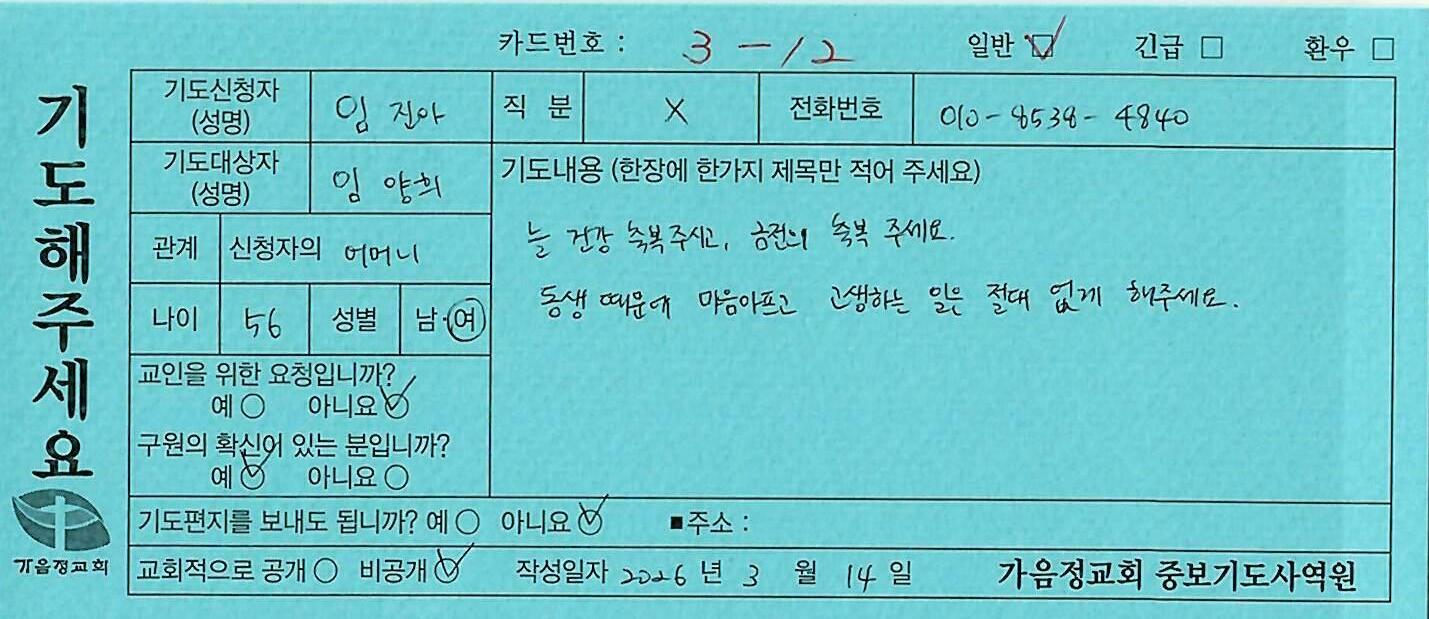 카드번호 : 3-12 일반 ☑ 긴급 □ 환우 □
기도해주세요
기도신청자 (성명) 임진아 직 분 X 전화번호 010-8538-4840
기도대상자 (성명) 임양희
기도내용 (한장에 한가지 제목만 적어 주세요)
늘 건강 축복주시고, 금전의 축복 주세요.
동생 때문에 마음아프고 고생하는 일은 절대 없게 해주세요.
관계 신청자의 어머니
나이 56 성별 남·여
교인을 위한 요청입니까?
예 ○ 아니요 ☑
구원의 확신이 있는 분입니까?
예 ☑ 아니요 ○
기도편지를 보내도 됩니까? 예 ○ 아니요 ☑ ■주소 :
교회적으로 공개 ○ 비공개 ☑ 작성일자 2026 년 3 월 14 일 가음정교회 중보기도사역원
가음정교회